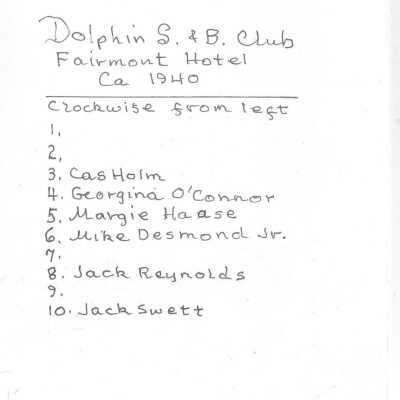 Dolphin S. & B. Club
Fairmont Hotel
Ca 1940
Clockwise from left
1.
2,
3. Cas Holm
4. Georgina O'Connor
5. Margie Haase
6. Mike Desmond Jr.
7.
8. Jack Reynolds
9.
10. Jack Swett